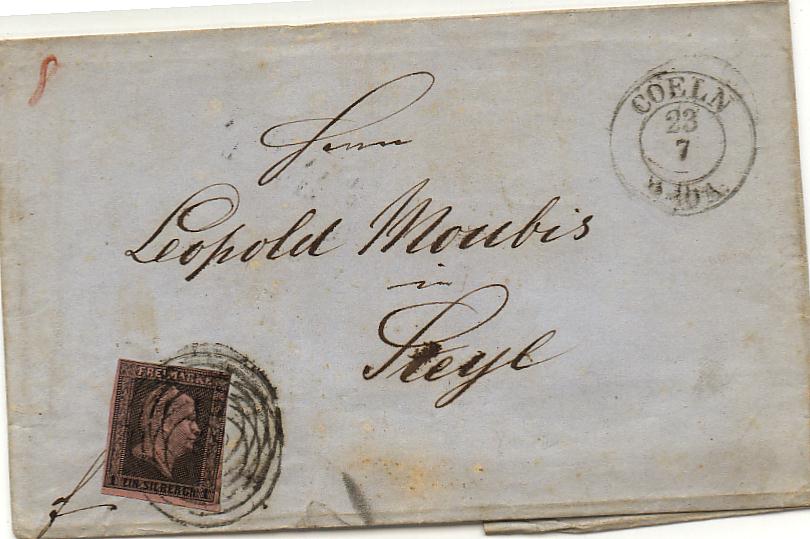 COELN
23
7
Herrn
Leopold Moubis
in
Steyl
FREIMARKE
1 EIN SILBERGR. 1